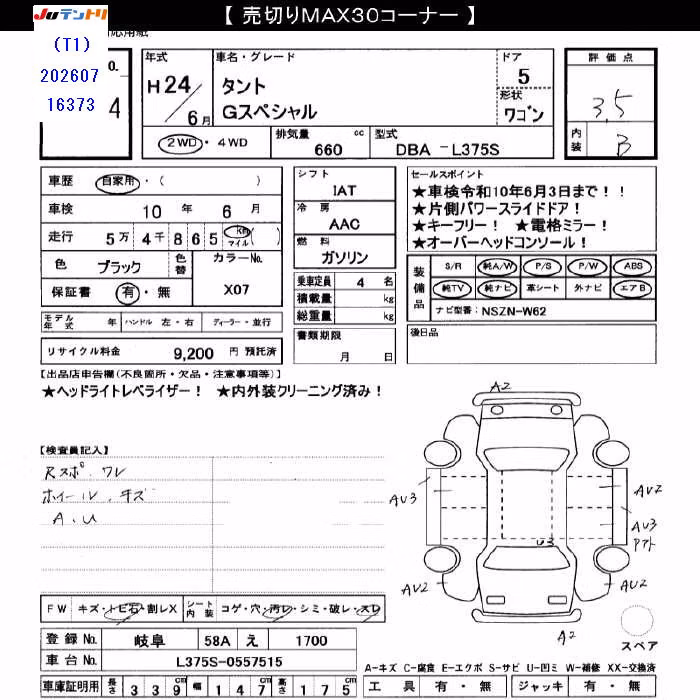 【 売切りMAX30コーナー 】
JUテントリ
(T1)
202607
16373
応用紙
o.
4
年式
H24/6月
車名・グレード
タント
Gスペシャル
ドア
5
形状
ワゴン
評価点
3.5
内装
B
2WD・4WD
排気量 660 cc
型式 DBA -L375S
車歴 自家用・( )
車検 10 年 6 月
走行 5万 4千 8 6 5 Km マイル ( )
色 ブラック 色替
カラーNo. X07
保証書 有・無
モデル年式 年 ハンドル 左・右 ディーラー・並行
リサイクル料金 9,200 円 預託済
シフト
IAT
冷房
AAC
燃料
ガソリン
乗車定員 4 名
積載量 kg
総重量 kg
書類期限
月 日
セールスポイント
★車検令和10年6月3日まで！！
★片側パワースライドドア！
★キーフリー！ ★電格ミラー！
★オーバーヘッドコンソール！
装備品
S/R 純A/W P/S P/W ABS
純TV 純ナビ 革シート 外ナビ エアB
ナビ型番: NSZN-W62
後日品
【出品店申告欄(不良箇所・欠品・注意事項等)】
★ヘッドライトレベライザー！ ★内外装クリーニング済み！
【検査員記入】
Rスポ ワレ
ホイール、キズ
A、U
A2
AU3
AU2
AU3
アト
U3
AU2
AU2
A2
スペア
FW キズ・トビ石・割レX
シート内装 コゲ・穴・汚レ・シミ・破レ・スレ
登録 No. 岐阜 58A え 1700
車台 No. L375S-0557515
車庫証明用 長さ 3 3 9 cm 幅 1 4 7 cm 高さ 1 7 5 cm
A-キズ C-腐食 E-エクボ S-サビ U-凹ミ W-補修 XX-交換済
工具 有・無 ジャッキ 有・無